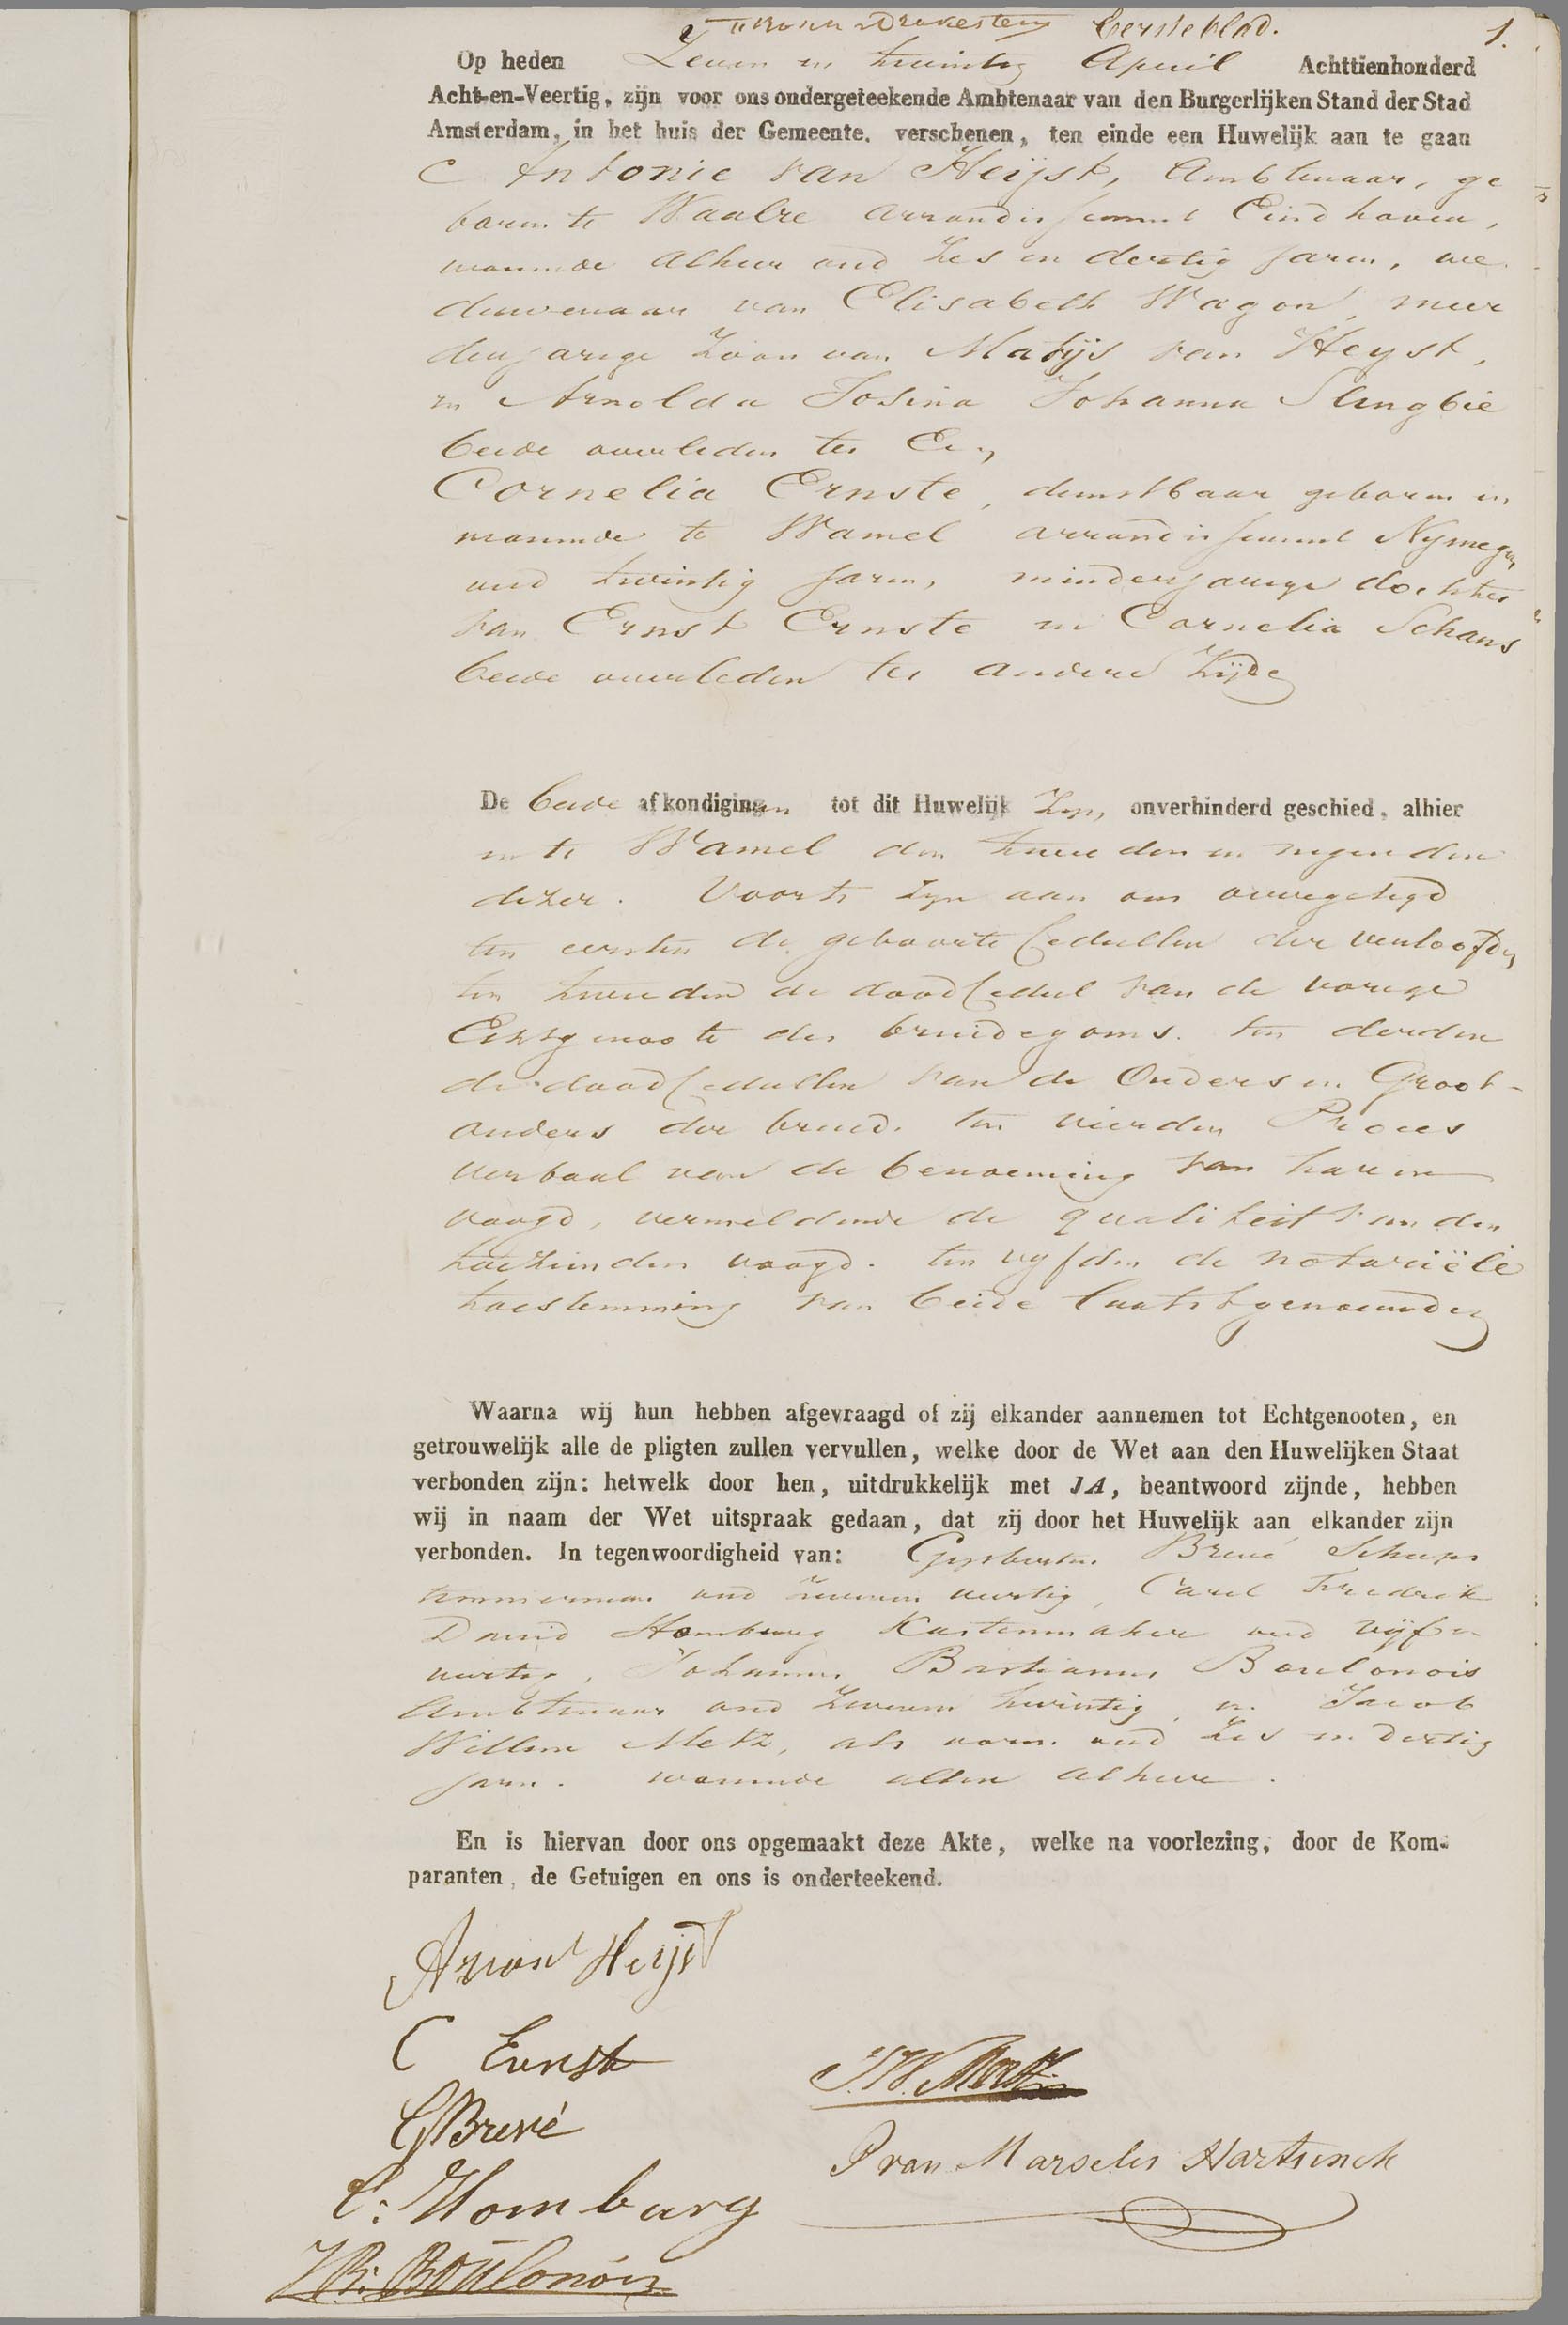 Eerste blad. 1.
Op heden Zeven en twintig April Achttienhonderd
Acht-en-Veertig, zijn voor ons ondergeteekende Ambtenaar van den Burgerlijken Stand der Stad
Amsterdam, in het huis der Gemeente, verschenen, ten einde een Huwelijk aan te gaan
Antonie van Heijst, Ambtenaar, ge
boren te Waalre arrondissement Eindhoven,
wonende alhier oud Zes en dertig Jaren, we
duwenaar van Elisabeth Wagon, meer
derjarige Zoon van Matijs van Heyst,
en Arnolda Josina Johanna Slingbie
beide overleden ter Een
Cornelia Ernste, dienstbaar geboren en
wonende te Wamel arrondissement Nymegen,
oud twintig Jaren, minderjarige dochter
van Ernst Ernste en Cornelia Schans
beide overleden ter andere Zijde
De beide afkondigingen tot dit Huwelijk Zyn onverhinderd geschied, alhier
en te Wamel den tweeden en negenden
dezer. Voorts zyn aan ons overgelegd
ten eersten de geboorte Cedullen der verloofden
ten tweeden de dood Cedul van de vorige
Echtgenoote des bruidegoms. ten derden
de dood Cedullen van de Ouders en Groot-
ouders der bruid. ten vierden Proces
verbaal van de benoeming van haren
voogd, vermeldende de qualiteit van den
toezienden voogd. ten vyfden de notariële
toestemming van beide laatstgenoemden
Waarna wij hun hebben afgevraagd of zij elkander aannemen tot Echtgenooten, en
getrouwelijk alle de pligten zullen vervullen, welke door de Wet aan den Huwelijken Staat
verbonden zijn: hetwelk door hen, uitdrukkelijk met JA, beantwoord zijnde, hebben
wij in naam der Wet uitspraak gedaan, dat zij door het Huwelijk aan elkander zijn
verbonden. In tegenwoordigheid van: Gysbertus Brevé Scheeps
timmerman oud Zeven en veertig, Carel Fredrik
David Homburg Kastenmaker oud vijf en
veertig, Johannes Bastianus Boulonois
Ambtenaar oud Zeven en twintig, en Jacob
Willem Metz, als voren oud Zes en dertig
Jaren. wonende allen alhier.
En is hiervan door ons opgemaakt deze Akte, welke na voorlezing, door de Kom-
paranten, de Getuigen en ons is onderteekend.
A van Heijst
C Ernst
G Brevé
C: Homburg
J B: Boulonois
J.W. Metz
P van Marselis Hartsinck